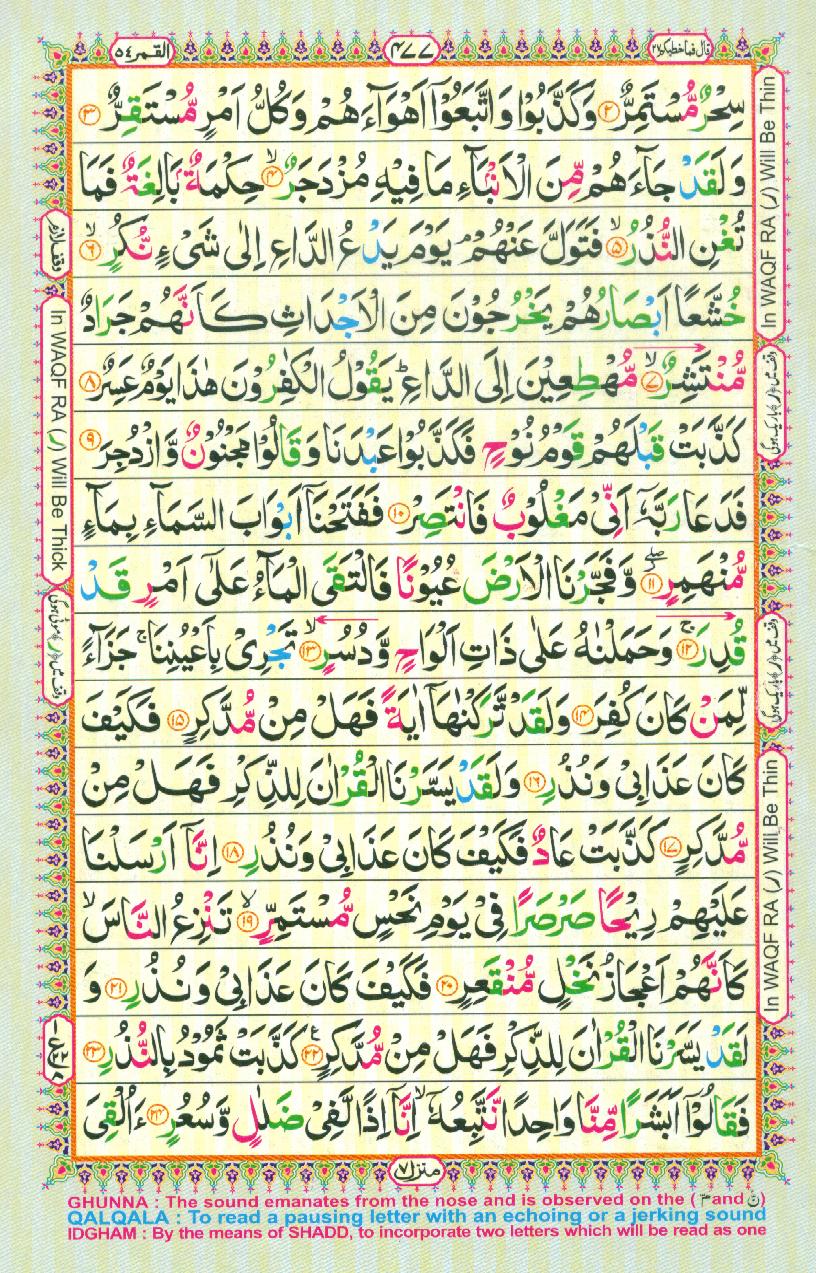 القمر ٥٤
٤٧٧
قال فما خطبکم ٢٧
سِحْرٌ مُّسْتَمِرٌّ ٢ وَكَذَّبُوْا وَاتَّبَعُوْۤا اَهْوَآءَهُمْ وَكُلُّ اَمْرٍ مُّسْتَقِرٌّ ٣
وَلَقَدْ جَآءَهُمْ مِّنَ الْاَنْۢبَآءِ مَا فِيْهِ مُزْدَجَرٌ ۙ ٤ حِكْمَةٌۢ بَالِغَةٌ فَمَا
تُغْنِ النُّذُرُ ۙ ٥ فَتَوَلَّ عَنْهُمْ ۘ يَوْمَ يَدْعُ الدَّاعِ اِلٰى شَىْءٍ نُّكُرٍ ۙ ٦
خُشَّعًا اَبْصَارُهُمْ يَخْرُجُوْنَ مِنَ الْاَجْدَاثِ كَاَنَّهُمْ جَرَادٌ
مُّنْتَشِرٌ ۙ ٧ مُّهْطِعِيْنَ اِلَى الدَّاعِ ؕ يَقُوْلُ الْكٰفِرُوْنَ هٰذَا يَوْمٌ عَسِرٌ ٨
كَذَّبَتْ قَبْلَهُمْ قَوْمُ نُوْحٍ فَكَذَّبُوْا عَبْدَنَا وَقَالُوْا مَجْنُوْنٌ وَّازْدُجِرَ ٩
فَدَعَا رَبَّهٗۤ اَنِّىْ مَغْلُوْبٌ فَانْتَصِرْ ١٠ فَفَتَحْنَاۤ اَبْوَابَ السَّمَآءِ بِمَآءٍ
مُّنْهَمِرٍ ۖ ١١ وَّفَجَّرْنَا الْاَرْضَ عُيُوْنًا فَالْتَقَى الْمَآءُ عَلٰٓى اَمْرٍ قَدْ
قُدِرَ ۚ ١٢ وَحَمَلْنٰهُ عَلٰى ذَاتِ اَلْوَاحٍ وَّدُسُرٍ ۙ ١٣ تَجْرِىْ بِاَعْيُنِنَا ۚ جَزَآءً
لِّمَنْ كَانَ كُفِرَ ١٤ وَلَقَدْ تَّرَكْنٰهَاۤ اٰيَةً فَهَلْ مِنْ مُّدَّكِرٍ ١٥ فَكَيْفَ
كَانَ عَذَابِىْ وَنُذُرِ ١٦ وَلَقَدْ يَسَّرْنَا الْقُرْاٰنَ لِلذِّكْرِ فَهَلْ مِنْ
مُّدَّكِرٍ ١٧ كَذَّبَتْ عَادٌ فَكَيْفَ كَانَ عَذَابِىْ وَنُذُرِ ١٨ اِنَّاۤ اَرْسَلْنَا
عَلَيْهِمْ رِيْحًا صَرْصَرًا فِىْ يَوْمِ نَحْسٍ مُّسْتَمِرٍّ ۙ ١٩ تَنْزِعُ النَّاسَ ۙ
كَاَنَّهُمْ اَعْجَازُ نَخْلٍ مُّنْقَعِرٍ ٢٠ فَكَيْفَ كَانَ عَذَابِىْ وَنُذُرِ ٢١ وَ
لَقَدْ يَسَّرْنَا الْقُرْاٰنَ لِلذِّكْرِ فَهَلْ مِنْ مُّدَّكِرٍ ٢٢ كَذَّبَتْ ثَمُوْدُ بِالنُّذُرِ ٢٣
فَقَالُوْۤا اَبَشَرًا مِّنَّا وَاحِدًا نَّتَّبِعُهٗۤ ۙ اِنَّاۤ اِذًا لَّفِىْ ضَلٰلٍ وَّسُعُرٍ ٢٤ ءَاُلْقِىَ
منزل ٧
In WAQF RA (ر) Will Be Thin
وقف میں (ر) باریک ہوگی
وقف میں (ر) باریک ہوگی
In WAQF RA (ر) Will Be Thin
وقف لازم
In WAQF RA (ر) Will Be Thick
وقف میں (ر) موٹی ہوگی
GHUNNA : The sound emanates from the nose and is observed on the ( م and ن )
QALQALA : To read a pausing letter with an echoing or a jerking sound
IDGHAM : By the means of SHADD, to incorporate two letters which will be read as one